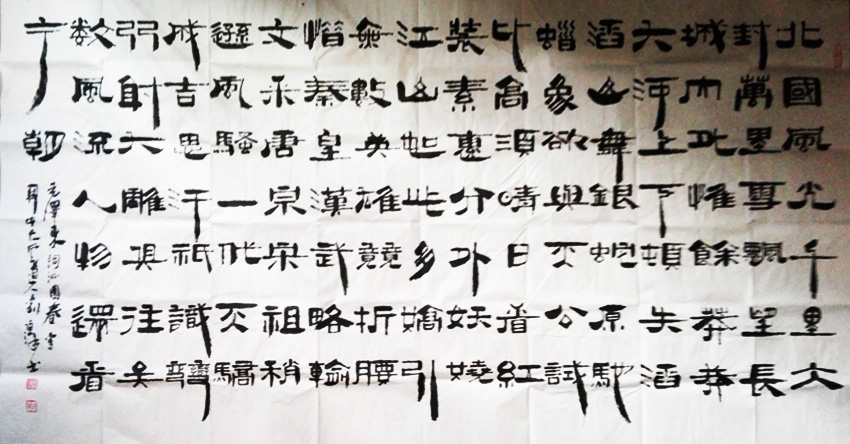 北國風光千里冰
封萬里雪飄望長
城内外惟餘莽莽
大河上下頓失滔
滔山舞銀蛇原馳
蜡象欲與天公試
比高須晴日看紅
裝素裹分外妖嬈
江山如此多嬌引
無數英雄競折腰
惜秦皇漢武略輸
文采唐宗宋祖稍
遜風騷一代天驕
成吉思汗祇識彎
弓射大雕俱往矣
数風流人物還看
今朝
毛澤東詞沁園春雪
書